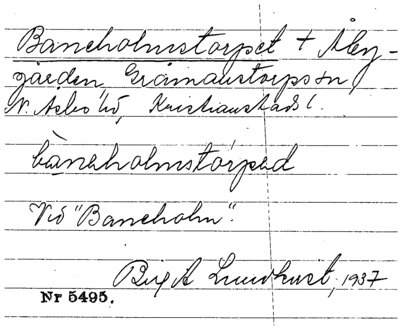 Baneholmstorpet + Åby-
gården, Gråmanstorps sn,
N. Åsbo hd, Kristianstads l.
bàneholmstórpəd
Vid "Baneholm".
Birg A Lundkvist, 1937
Nr 5495.